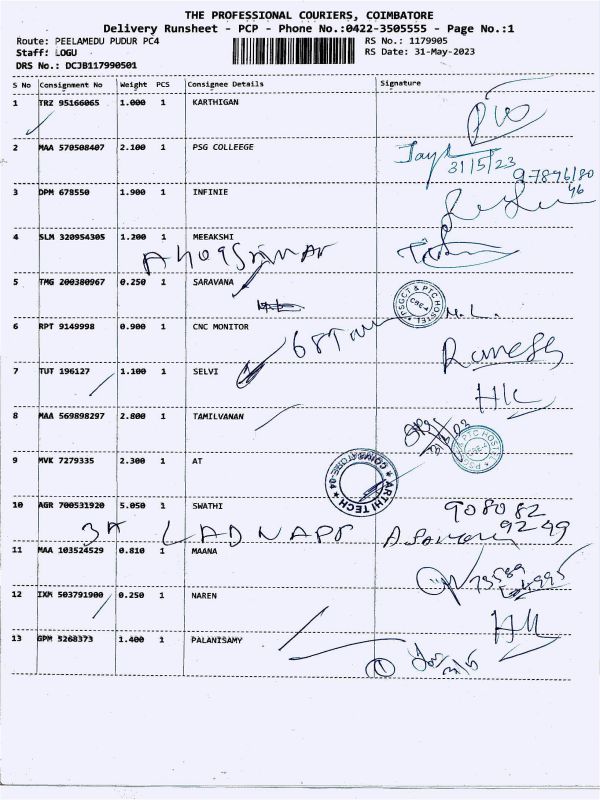 THE PROFESSIONAL COURIERS, COIMBATORE
Delivery Runsheet - PCP - Phone No.:0422-3505555 - Page No.:1
Route: PEELAMEDU PUDUR PC4 RS No.: 1179905
Staff: LOGU RS Date: 31-May-2023
DRS No.: DCJB117990501
S No Consignment No Weight PCS Consignee Details Signature
1 TRZ 95166065 1.000 1 KARTHIGAN
2 MAA 570508407 2.100 1 PSG COLLEEGE
31/5/23
3 DPM 678550 1.900 1 INFINIE
4 SLM 320954305 1.200 1 MEEAKSHI
5 TMG 200380967 0.250 1 SARAVANA
PSGCT & PTC HOSTEL CBE-4
6 RPT 9149998 0.900 1 CNC MONITOR
Ramesh
7 TUT 196127 1.100 1 SELVI
HK
8 MAA 569898297 2.800 1 TAMILVANAN
9 MVK 7279335 2.300 1 AT
ARTHI TECH COIMBATORE-04
10 AGR 700531920 5.050 1 SWATHI
908082
9249
11 MAA 103524529 0.810 1 MAANA
12 IXM 503791900 0.250 1 NAREN
HK
13 GPM 5268373 1.400 1 PALANISAMY